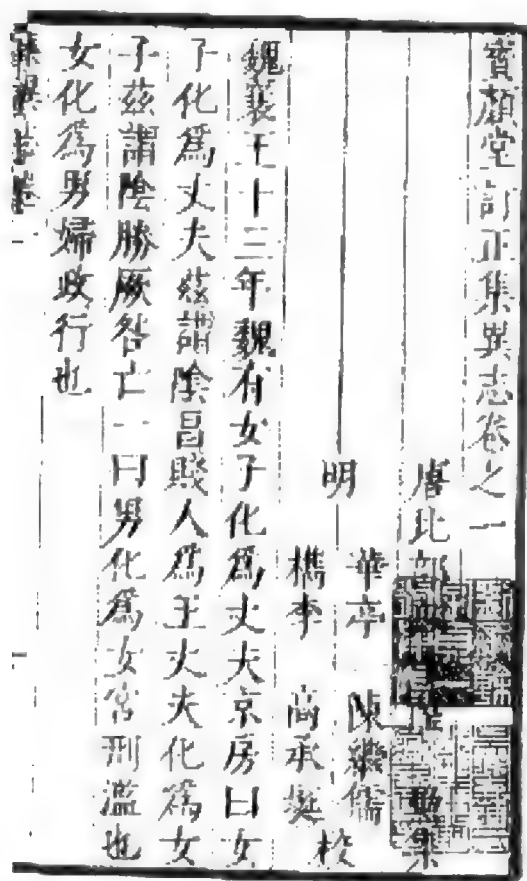 寶顏堂訂正集異志卷之一
唐比部郎中 勳集
明 華亭 陳繼儒
檇李 高承埏 校
魏襄王十三年魏有女子化爲丈夫京房曰女
子化爲丈夫茲謂陰昌賤人爲王丈夫化爲女
子茲謂陰勝厥咎亡一曰男化爲女宮刑濫也
女化爲男婦政行也